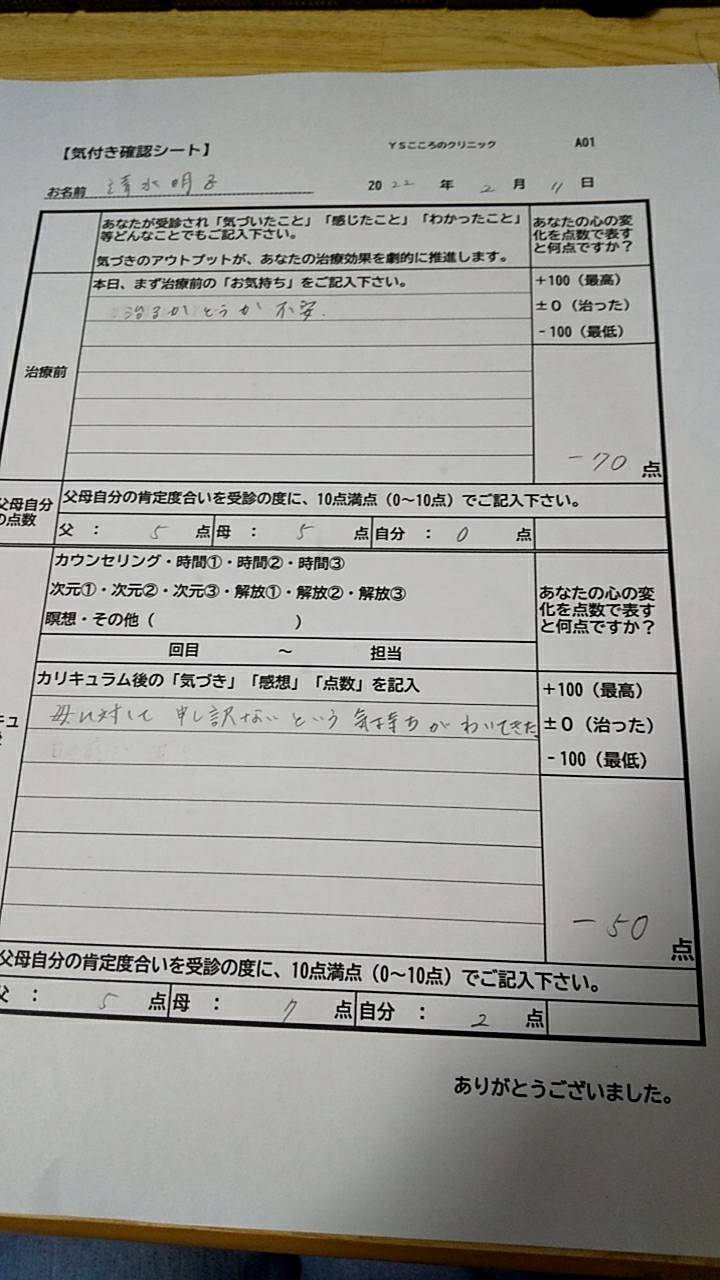 【気付き確認シート】
YSこころのクリニック
A01
お名前 清水明子
2022年2月11日
あなたが受診され「気づいたこと」「感じたこと」「わかったこと」
等どんなことでもご記入下さい。
気づきのアウトプットが、あなたの治療効果を劇的に推進します。
あなたの心の変
化を点数で表す
と何点ですか？
治療前
本日、まず治療前の「お気持ち」をご記入下さい。
治るかどうか不安.
+100（最高）
±0（治った）
-100（最低）
-70点
父母自分
の点数
父母自分の肯定度合いを受診の度に、10点満点（0～10点）でご記入下さい。
父：5点 母：5点 自分：0点
カウンセリング・時間①・時間②・時間③
次元①・次元②・次元③・解放①・解放②・解放③
瞑想・その他（　　　）
回目　～　担当
あなたの心の変
化を点数で表す
と何点ですか？
カリキュラム後の「気づき」「感想」「点数」を記入
母に対して申し訳ないという気持ちがわいてきた
+100（最高）
±0（治った）
-100（最低）
-50点
父母自分の肯定度合いを受診の度に、10点満点（0～10点）でご記入下さい。
父：5点 母：7点 自分：2点
ありがとうございました。